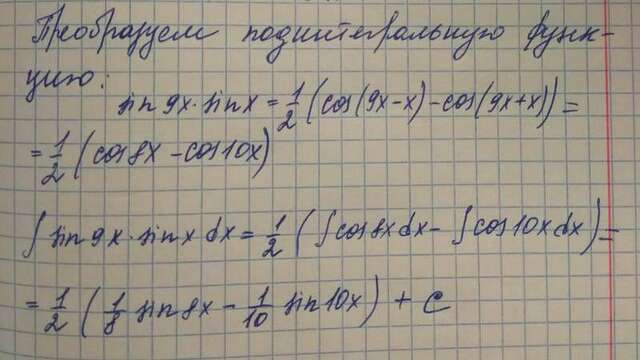 Преобразуем подинтегральную функ-
цию:
sin 9x · sin x = 1/2 (cos(9x-x) - cos(9x+x)) =
= 1/2 (cos 8x - cos 10x)
∫ sin 9x · sin x dx = 1/2 (∫ cos 8x dx - ∫ cos 10x dx) =
= 1/2 (1/8 sin 8x - 1/10 sin 10x) + C